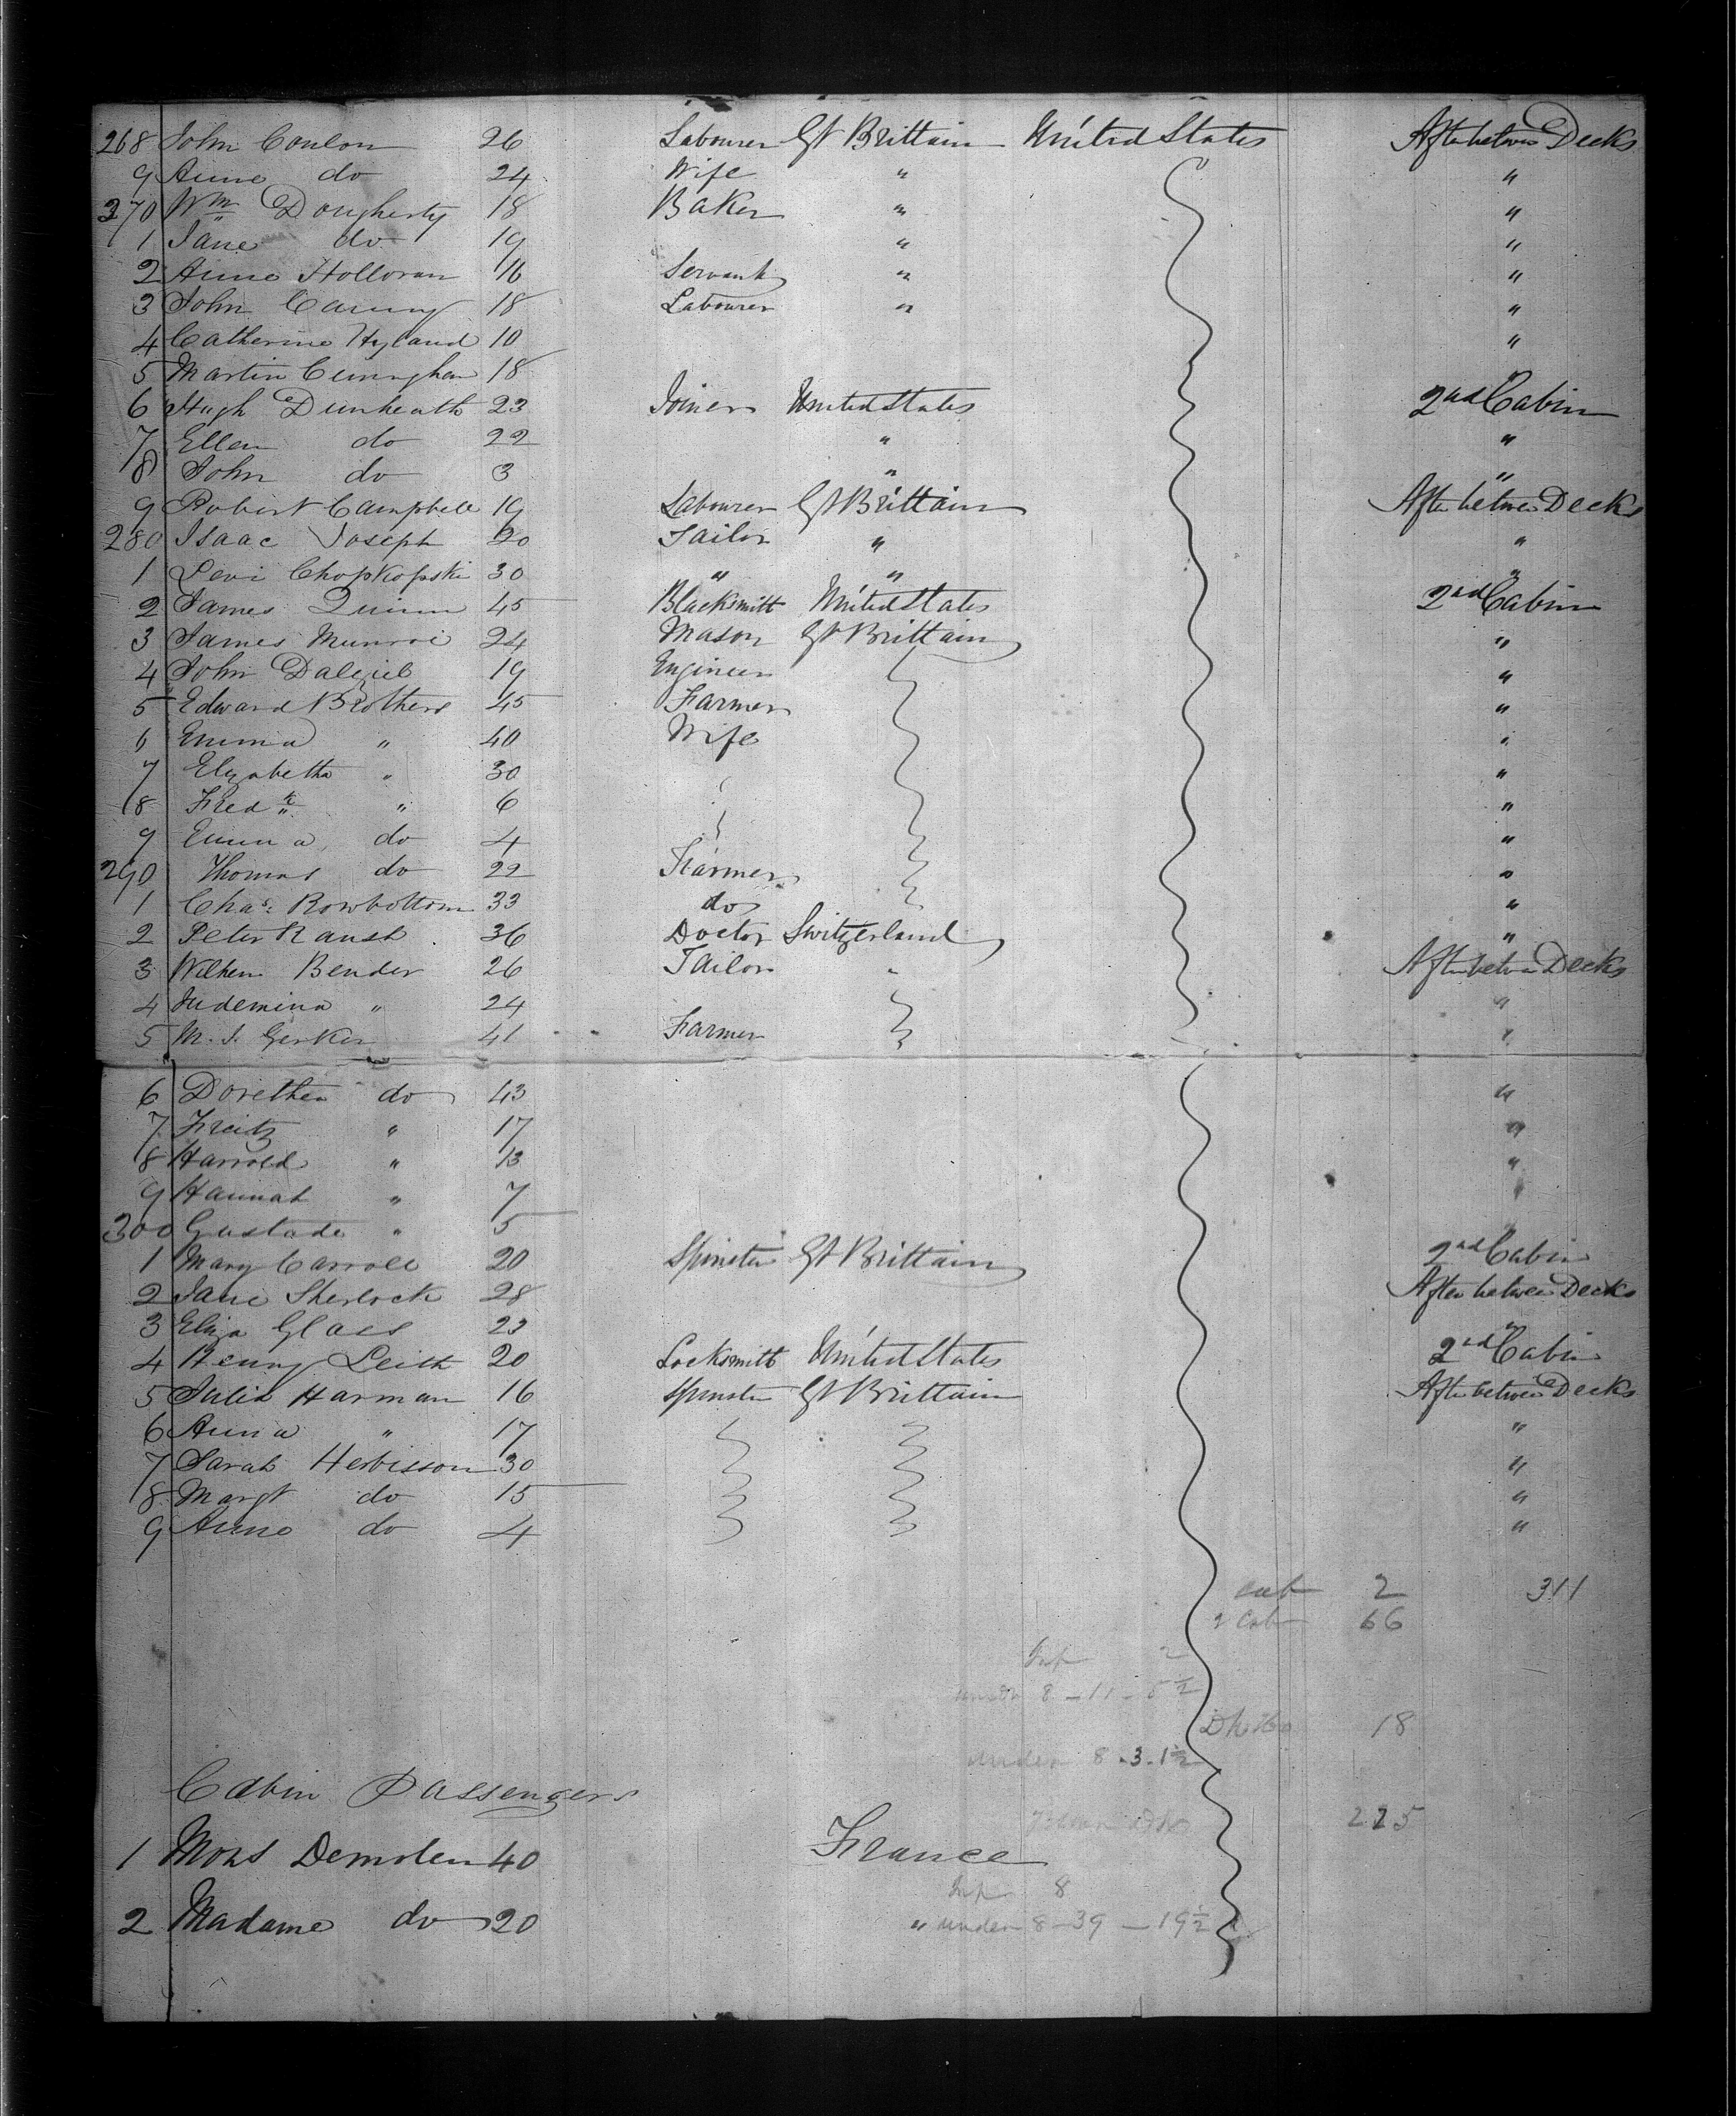 268 John Conlon 26 Labourer Gt Brittain United States After between Decks
9 Anne do 24 Wife " "
270 Wm Dougherty 18 Baker " "
1 Jane do 19 " "
2 Anne Holloran 16 Servant " "
3 John Carny 18 Labourer " "
4 Catherine Hyland 10 "
5 Martin Cuningham 18 "
6 Hugh Dunheath 23 Joiner United States 2nd Cabin
7 Ellen do 22 " "
8 John do 3 " "
9 Robert Campbell 19 Labourer Gt Brittain After between Decks
280 Isaac Joseph 20 Tailor " "
1 Levi Chopkopski 30 " " "
2 James Quinn 45 Blacksmith United States 2nd Cabin
3 James Munroi 24 Mason Gt Brittain "
4 John Dalziel 19 Engineer "
5 Edward Brothers 45 Farmer "
6 Emma " 40 Wife "
7 Elizabeth " 30 "
8 Fredk " 6 "
9 Emma do 4 "
290 Thomas do 22 Farmer "
1 Chas. Rowbottom 33 do "
2 Peter Raush 36 Doctor Switzerland "
3 Wilhem Bender 26 Tailor " After between Decks
4 " 24 "
5 M. J. Gerker 41 Farmer "
6 Dorethea do 43 "
7 Freitz " 17 "
8 Harrold " 13 "
9 Hannah " 7 "
300 Gustade " 5 "
1 Mary Carroll 20 Spinster Gt Brittain 2nd Cabin
2 Jane Sherlock 28 After between Decks
3 Eliza Glass 23 "
4 Henny Leith 20 Locksmith United States 2nd Cabin
5 Julia Harman 16 Spinster Gt Brittain After between Decks
6 Anna " 17 "
7 Sarah Herbisson 30 "
8 Margt do 15 "
9 Anne do 4 "
cab 2 311
2 Cab 66
Inf 2
under 8 - 11 - 5 1/2
18
under 8 - 3 - 1 1/2
Cabin Passengers
225
1 Mons Demolen 40 France
Inf 8
2 Madame do 20
" under 8 - 39 - 19 1/2